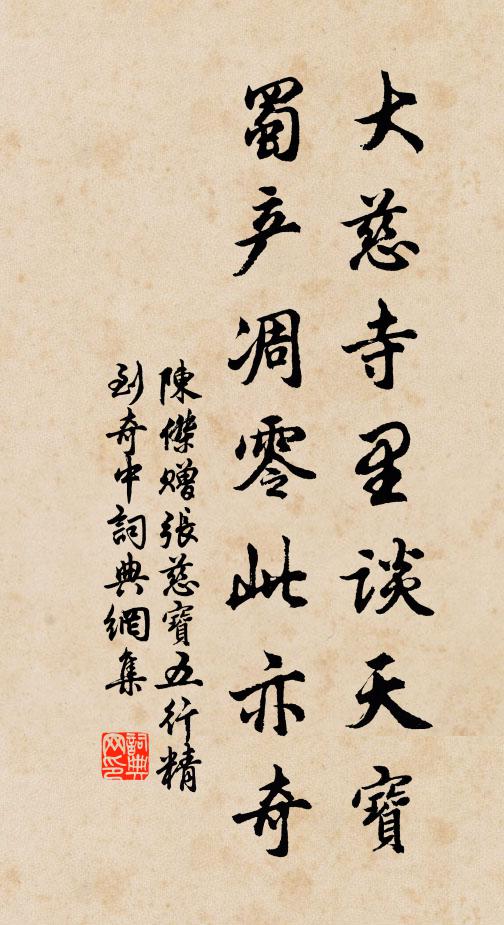 大慈寺里談天寶
蜀产凋零此亦奇
陳傑贈張慈寶五行精
到奇中詞典網集
詞典網印